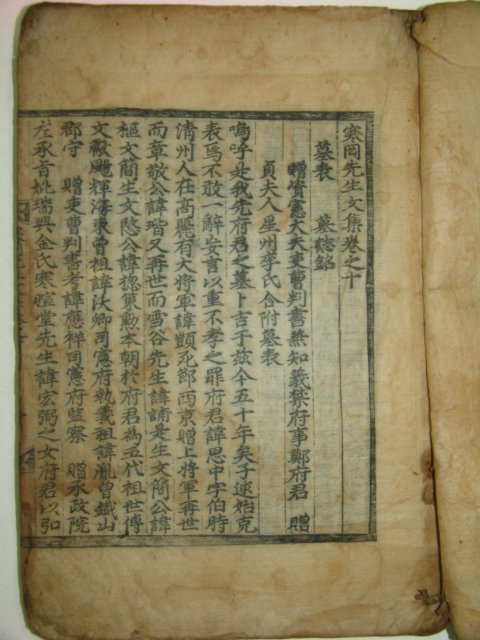 寒岡先生文集卷之十
墓表 墓誌銘
贈資憲大夫吏曹判書兼知義禁府事鄭府君 贈
貞夫人星州李氏合祔墓表
嗚呼是我先府君之墓卜吉于玆今五十年矣子逑始克
表焉不敢一辭妄言以重不孝之罪府君諱思中字伯時
淸州人在高麗有大將軍諱顗死節西京贈上將軍再世
而章敬公諱瑎又再世而雪谷先生諱誧是生文簡公諱
樞文簡生文愍公諱摠策勳本朝於府君為五代祖世傳
文獻颺輝海東曾祖諱沃卿司憲府執義祖諱胤曾鐵山
郡守 贈吏曹判書考諱應祥司憲府監察 贈承政院
左承旨妣瑞興金氏寒暄堂先生諱宏弼之女府君以弘